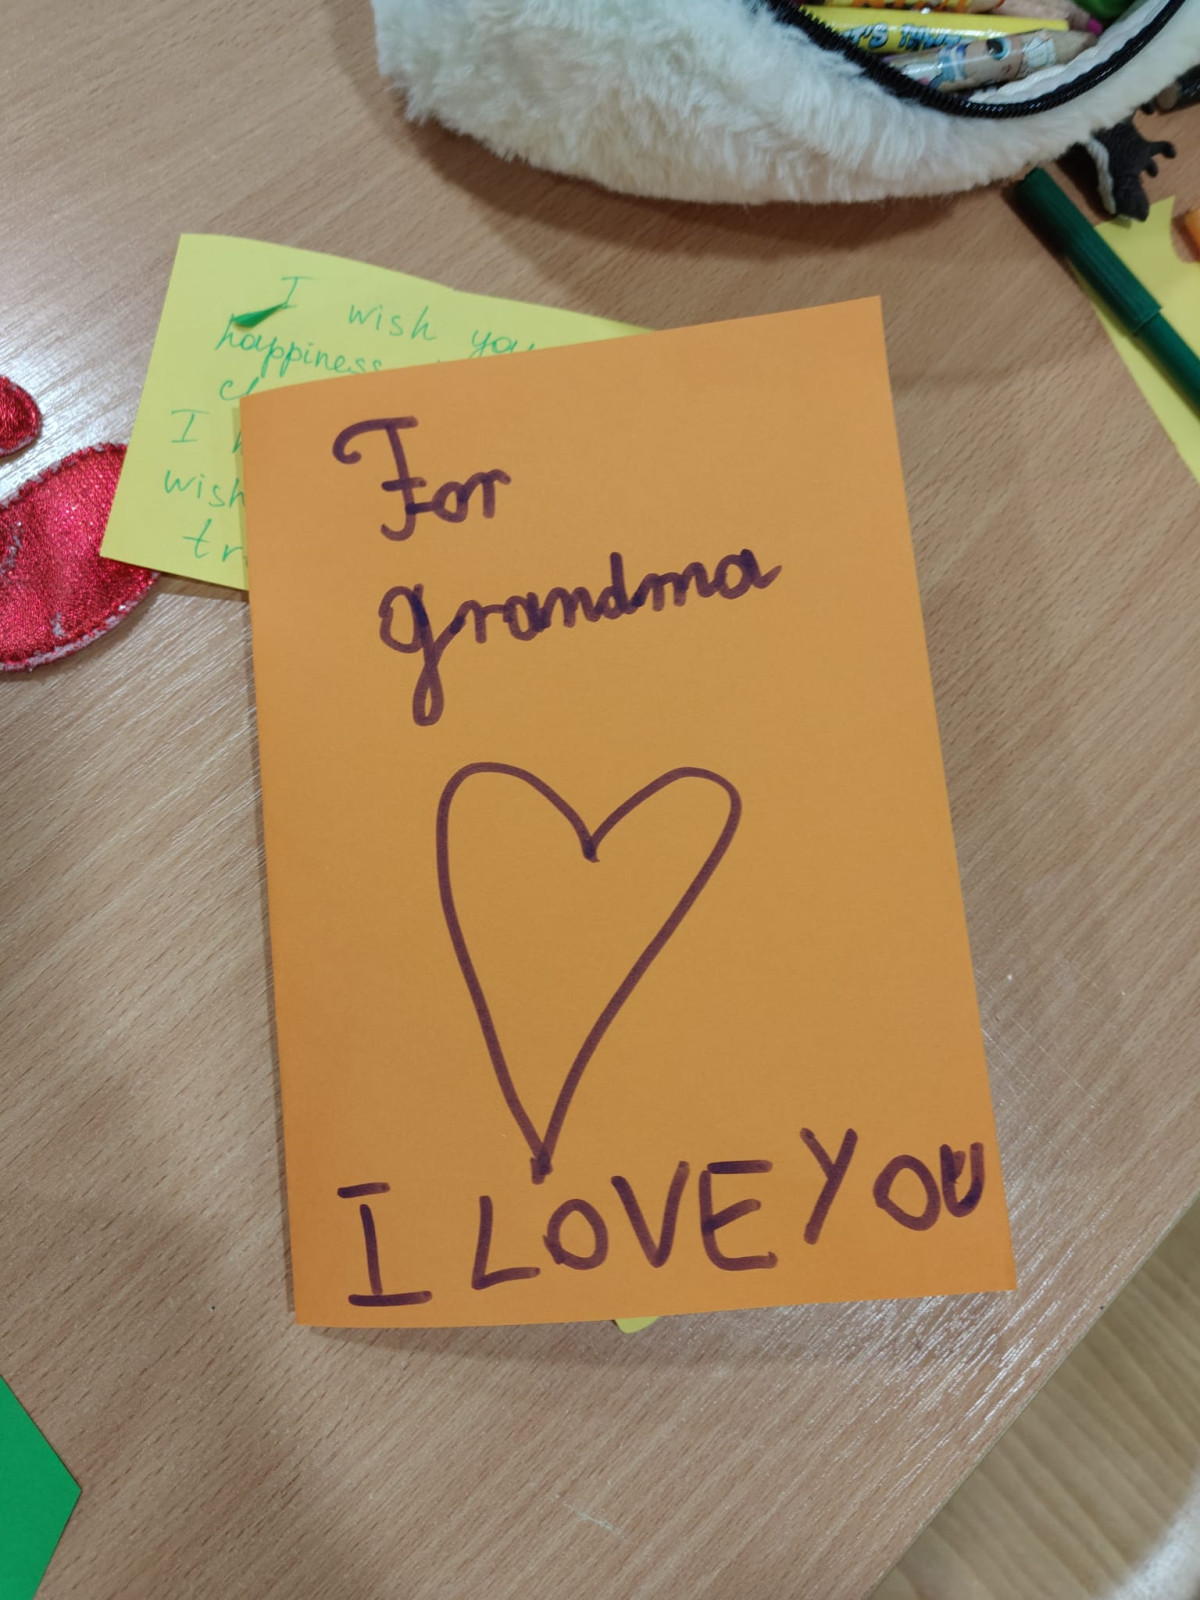 I wish you
happiness
I
wish
For
grandma
I LOVE YOU